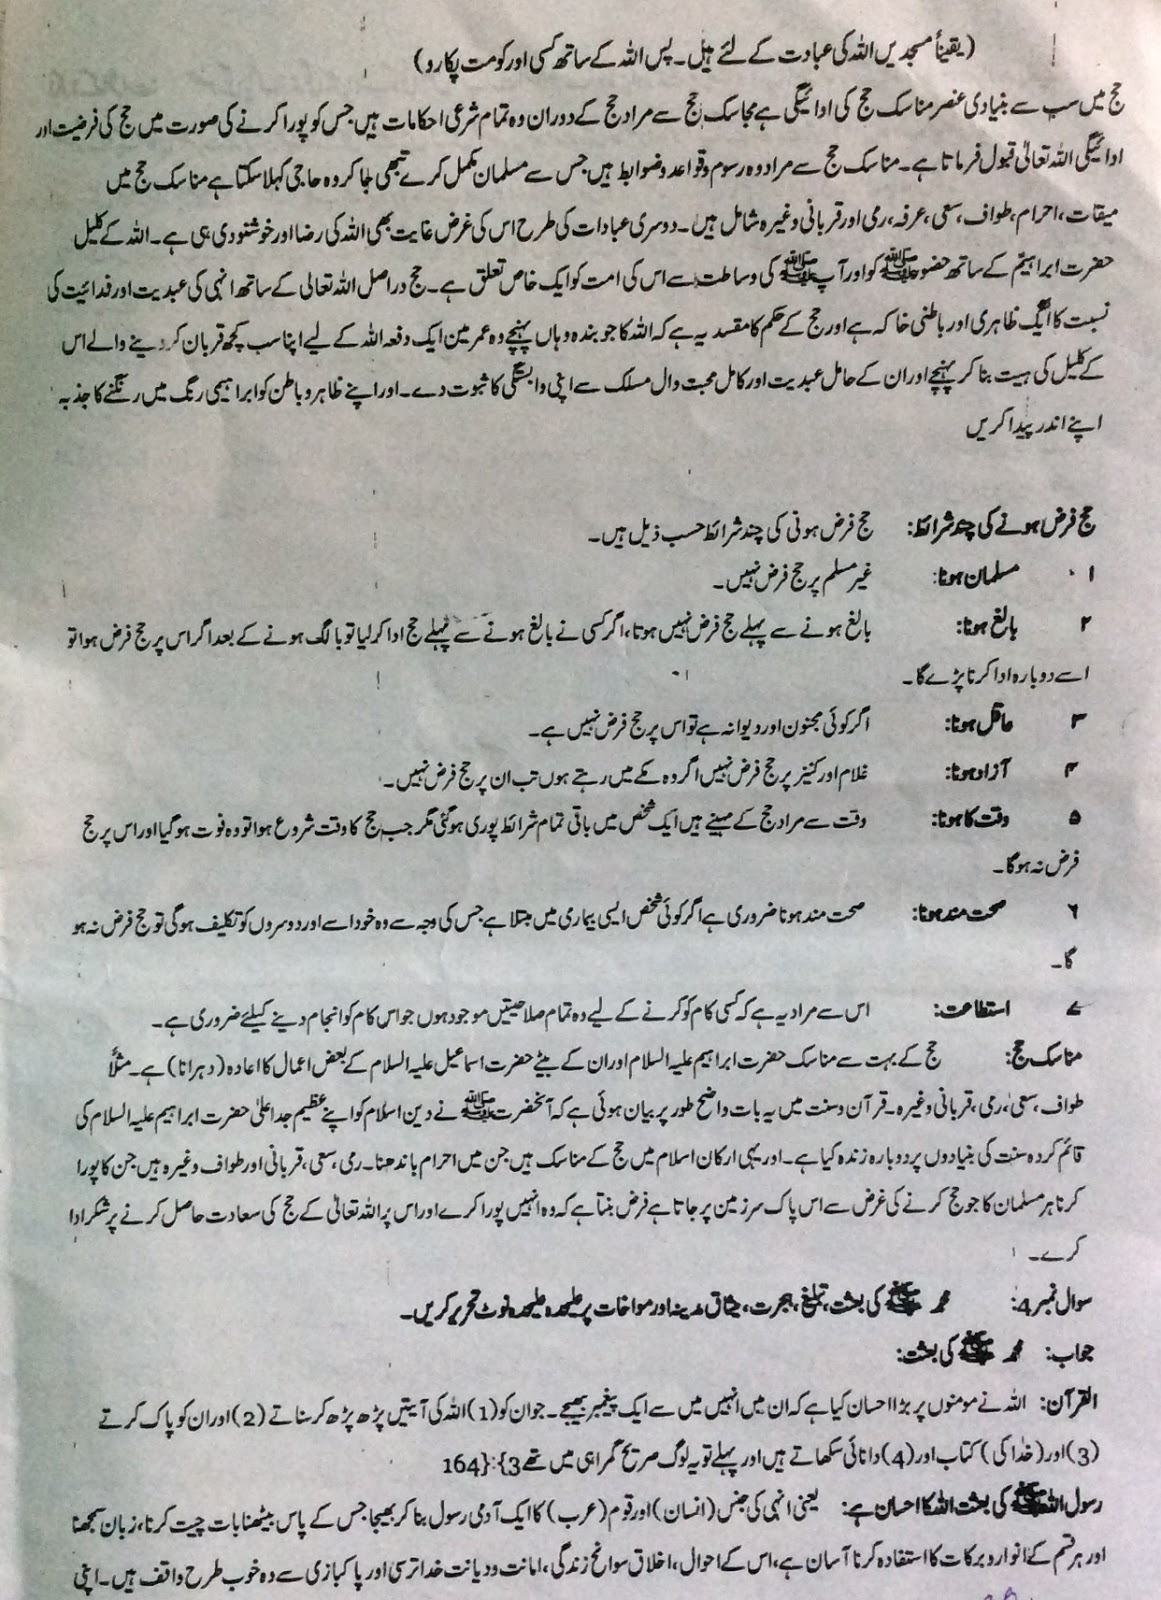 (یقیناً مسجدیں اللہ کی عبادت کے لئے ہیں۔ پس اللہ کے ساتھ کسی اور کو مت پکارو)
حج میں سب سے بنیادی عنصر مناسک حج کی ادائیگی ہے مجاسک حج سے مراد حج کے دوران وہ تمام شرعی احکامات ہیں جس کو پورا کرنے کی صورت میں حج کی فرضیت اور
ادائیگی اللہ تعالیٰ قبول فرماتا ہے۔ مناسک حج سے مراد وہ رسوم و قواعد و ضوابط ہیں جس سے مسلمان مکمل کرے تبھی جا کر وہ حاجی کہلا سکتا ہے مناسک حج میں
میقات، احرام، طواف، سعی، عرفہ، رمی اور قربانی وغیرہ شامل ہیں۔ دوسری عبادات کی طرح اس کی غرض غایت بھی اللہ کی رضا اور خوشنودی ہی ہے۔ اللہ کے کلیل
حضرت ابراہیم کے ساتھ حضورﷺ کو اور آپﷺ کی وساطت سے اس کی امت کو ایک خاص تعلق ہے۔ حج دراصل اللہ تعالی کے ساتھ انہی کی عبدیت اور فدائیت کی
نسبت کا ایک ظاہری اور باطنی خاکہ ہے اور حج کے حکم کا مقسد یہ ہے کہ اللہ کا جو بندہ وہاں پہنچے وہ عمر مین ایک دفعہ اللہ کے لیے اپنا سب کچھ قربان کر دینے والے اس
کے کلیل کی ہیت بنا کر پہنچے اور ان کے حامل عبدیت اور کامل محبت وال مسلک سے اپنی وابستگی کا ثبوت دے۔ اور اپنے ظاہر و باطن کو ابراہیمی رنگ میں رنگنے کا جذبہ
اپنے اندر پیدا کریں
حج فرض ہونے کی چند شرائط: حج فرض ہونی کی چند شرائط حسب ذیل ہیں۔
۱ مسلمان ہونا: غیر مسلم پر حج فرض نہیں۔
۲ بالغ ہونا: بالغ ہونے سے پہلے حج فرض نہیں ہوتا، اگر کسی نے بالغ ہونے سے پہلے حج ادا کر لیا تو بالگ ہونے کے بعد اگر اس پر حج فرض ہوا تو
اسے دوبارہ ادا کرنا پڑے گا۔
۳ عاقل ہونا: اگر کوئی مجنون اور دیوانہ ہے تو اس پر حج فرض نہیں ہے۔
۴ آزاد ہونا: غلام اور کنیز پر حج فرض نہیں اگر وہ مکے میں رہتے ہوں تب ان پر حج فرض نہیں۔
۵ وقت کا ہونا: وقت سے مراد حج کے مہینے ہیں ایک شخص میں باقی تمام شرائط پوری ہو گئی مگر جب حج کا وقت شروع ہوا تو وہ فوت ہو گیا اور اس پر حج
فرض نہ ہوگا۔
۶ صحت مند ہونا: صحت مند ہونا ضروری ہے اگر کوئی شخص ایسی بیماری میں مبتلا ہے جس کی وجہ سے وہ خود اسے اور دوسروں کو تکلیف ہوگی تو حج فرض نہ ہو
گا۔
۷ استطاعت: اس سے مراد یہ ہے کہ کسی کام کو کرنے کے لیے وہ تمام صلاحیتیں موجود ہوں جو اس کام کو انجام دینے کیلئے ضروری ہے۔
مناسک حج: حج کے بہت سے مناسک حضرت ابراہیم علیہ السلام اور ان کے بیٹے حضرت اسماعیل علیہ السلام کے بعض اعمال کا اعادہ (دہرانا) ہے۔ مثلاً
طواف، سعی، رمی، قربانی وغیرہ۔ قرآن و سنت میں یہ بات واضح طور پر بیان ہوئی ہے کہ آنحضرتﷺ نے دین اسلام کو اپنے عظیم جد اعلیٰ حضرت ابراہیم علیہ السلام کی
قائم کردہ سنت کی بنیادوں پر دوبارہ زندہ کیا ہے۔ اور یہی ارکان اسلام میں حج کے مناسک ہیں جن میں احرام باندھنا۔ رمی، سعی، قربانی اور طواف وغیرہ ہیں جن کا پورا
کرنا ہر مسلمان کا جو حج کرنے کی غرض سے اس پاک سرزمین پر جاتا ہے فرض بنتا ہے کہ وہ انہیں پورا کرے اور اس پر اللہ تعالیٰ کے حج کی سعادت حاصل کرنے پر شکر ادا
کرے۔
سوال نمبر 4: محمد ﷺ کی بعثت، تبلیغ، ہجرت، میثاق مدینہ اور مواخات پر علیحدہ علیحدہ نوٹ تحریر کریں۔
جواب: محمد ﷺ کی بعثت:
القرآن: اللہ نے مومنوں پر بڑا احسان کیا ہے کہ ان میں انہیں میں سے ایک پیغمبر بھیجے۔ جو ان کو (1) اللہ کی آیتیں پڑھ پڑھ کر سناتے (2) اور ان کو پاک کرتے
(3) اور (خدا کی) کتاب اور (4) دانائی سکھاتے ہیں اور پہلے تو یہ لوگ صریح گمراہی میں تھے {3:164}
رسول اللہﷺ کی بعثت اللہ کا احسان ہے: یعنی انہی کی جنس (انسان) اور قوم (عرب) کا ایک آدمی رسول بنا کر بھیجا جس کے پاس بیٹھنا بات چیت کرنا، زبان سمجھنا
اور ہر قسم کے انوار و برکات کا استفادہ کرنا آسان ہے، اس کے احوال، اخلاق سوانح زندگی، امانت و دیانت خدا ترسی اور پاکبازی سے وہ خوب طرح واقف ہیں۔ اپنی